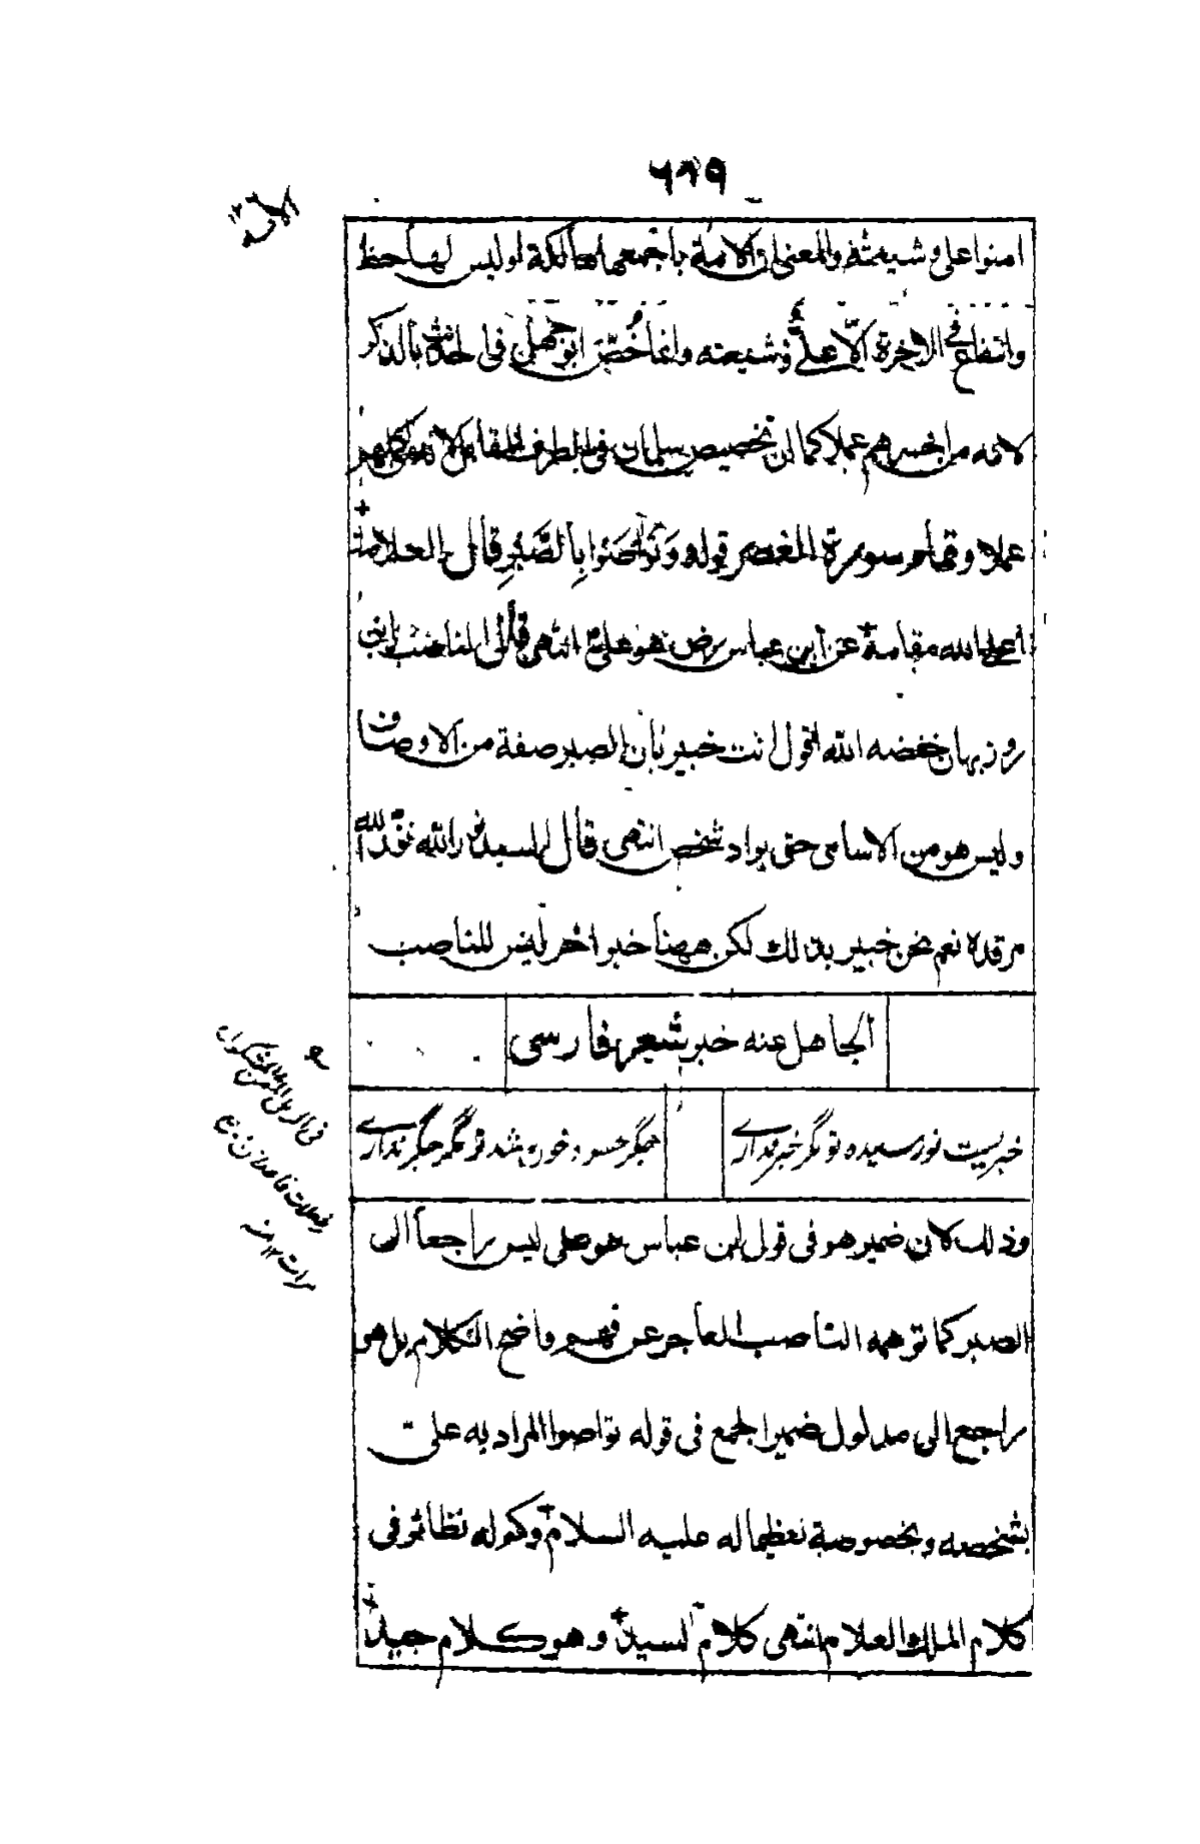 ٦٨٩
امنوا على وشيعته والمعنى ان الامة باجمعها هالكة او ليس لها حظ
وانتفاع في الاخرة الا علي وشيعته وانما خص ابو جهل في بالذكر
لانه من اخسرهم عملا كما ان تخصيص سلمان في الطرف المقابل
عملا وتمام سورة العصر قوله وتواصوا بالصبر قال العلامة
اعلى الله مقامه عن ابن عباس رض هو علي انتهى قال الناصب ابن
روزبهان خفضه الله اقول انت خبير بان الصبر صفة من الاوصاف
وليس هو من الاسامى حتى يراد شخص انتهى قال السيد نور الله نور الله
مرقده نعم نحن خبير بذلك لكن ههنا خبر اخر ليس للناصب
الجاهل عنه خبر شعر فارسى
خبريست نورسيده تو مگر خبر ندارى جگر حسود خون شد تو مگر جگر ندارى
وذلك لان ضمير هو فى قول ابن عباس هو على ليس راجعا الى
الصبر كما توهمه الناصب العاجز عن فهم واضح الكلام بل هو
راجع الى مدلول ضمير الجمع فى قوله تواصوا المراد به على
بشخصه وبخصوصه تعظيما له عليه السلام وكم له نظائر فى
كلام الملك العلام انتهى كلام السيد وهو كلام جيد